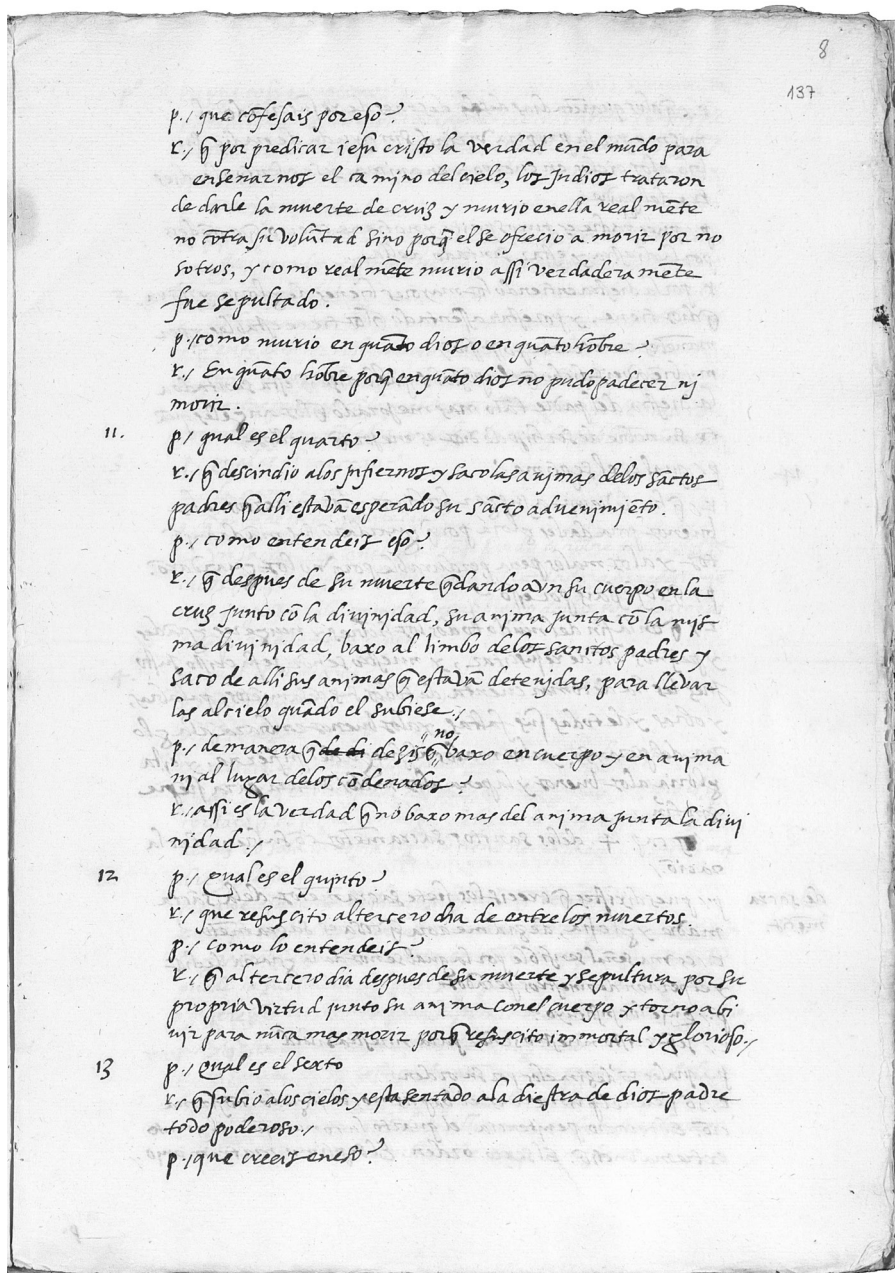 8
137
p./ que cõfesais por eso?
r./ q̃ por predicar iesu cristo la verdad en el mũdo para
enseñarnos el camino del cielo, los Judios trataron
de darle la muerte de cruz y murio en ella real mẽte
no cõtra su volũtad sino porq̃ el se ofrecio a morir por no
sotros, y como real mẽte murio assi verdadera mẽte
fue sepultado.
p./ como murio en quãto dios o en quãto hõbre?
r./ En quãto hõbre porq̃ en quãto dios no pudo padecer nj
morir.
11. p./ qual es el quarto?
r./ q̃ descindio a los jnfiernos y saco las anjmas de los sãctos
padres q̃ alli estavã esperãdo su sãcto advenimjẽto.
p./ como entendeis eso?
r./ q̃ despues de su muerte q̃dando aun su cuerpo en la
cruz junto cõ la divinidad, su anima junta cõ la mis
ma divinidad, baxo al limbo de los sanctos padres y
saco de alli sus animas q̃ estavã detenjdas, para llevar
las al cielo quãdo el subiese./
p./ de manera q̃ de di dezis q̃ no baxo en cuerpo y en anima
ni al lugar de los cõdenados?
r./ assi es la verdad q̃ no baxo mas del anima junta la divi
nidad./
12 p./ Qual es el qujnto?
r./ que resuscito al tercero dia de entre los muertos.
p./ como lo entendeis?
r./ q̃ al tercero dia despues de su muerte y sepultura por su
propria virtud junto su anima con el cuerpo y torno a bi
vir para nũca mas morir porq̃ resuscito immortal y glorioso./
13 p./ Qual es el sexto
r./ q̃ subio a los cielos y esta sentado a la diestra de dios padre
todo poderoso./
p./ que creeis en eso?